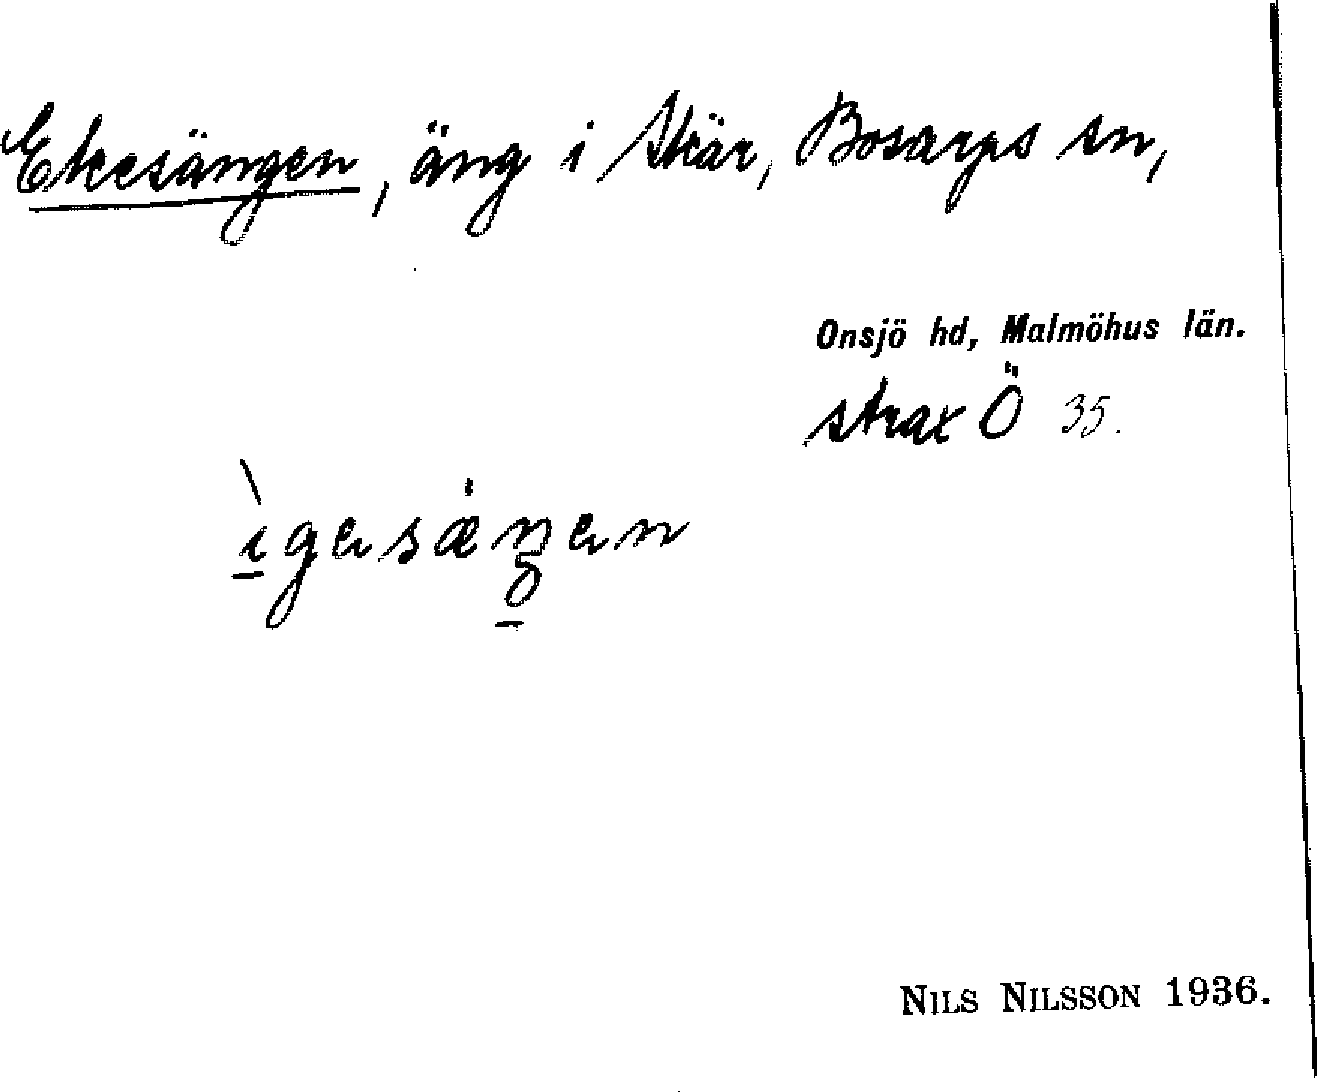 Ekesängen, äng i Skär, Bosarps sn,
Onsjö hd, Malmöhus län.
strax Ö 35.
ìgesäŋen
NILS NILSSON 1936.